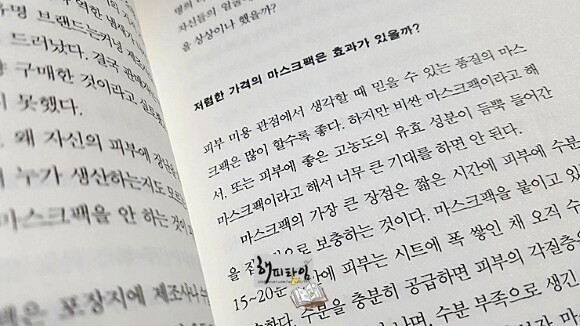 역한 냄새가
유명 브랜드는커녕
드러났다. 결국
구매한 것이라고
지 못했다.
왜 자신의 피부에
누가 생산하는지도 모르
마스크팩을 안 하는 것이
포장지에 제조사나
자신들의 얼굴
을 상상이나 했을까?
저렴한 가격의 마스크팩은 효과가 있을까?
피부 미용 관점에서 생각할 때 믿을 수 있는 품질의 마스
크팩은 많이 할수록 좋다. 하지만 비싼 마스크팩이라고 해
서, 또는 피부에 좋은 고농도의 유효 성분이 듬뿍 들어간
마스크팩이라고 해서 너무 큰 기대를 하면 안 된다.
마스크팩의 가장 큰 장점은 짧은 시간에 피부에 수분
을 으로 보충하는 것이다. 마스크팩을 붙이고 있
15~20분 피부는 시트에 폭 싸인 채 오직 수
수분을 충분히 공급하면 피부의 각질층
수분 부족으로 생긴
행피타임